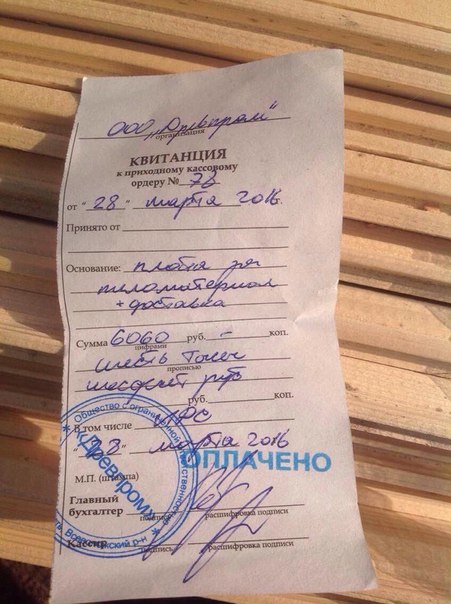 ООО „Древпром"
организация
КВИТАНЦИЯ
к приходному кассовому
ордеру № 76
от "28" марта 2016
Принято от
Основание: плата за
пиломатериал
+ доставка
Сумма 6060 руб. – коп.
цифрами
шесть тысяч
прописью
шесдесят руб
руб. коп.
В том числе НДС
"28" марта 2016
Общество с ограниченной ответственностью
«Древпром»
р-н
ОПЛАЧЕНО
М.П. (штампа)
Главный
бухгалтер
подпись расшифровка подписи
Кассир
подпись расшифровка подписи